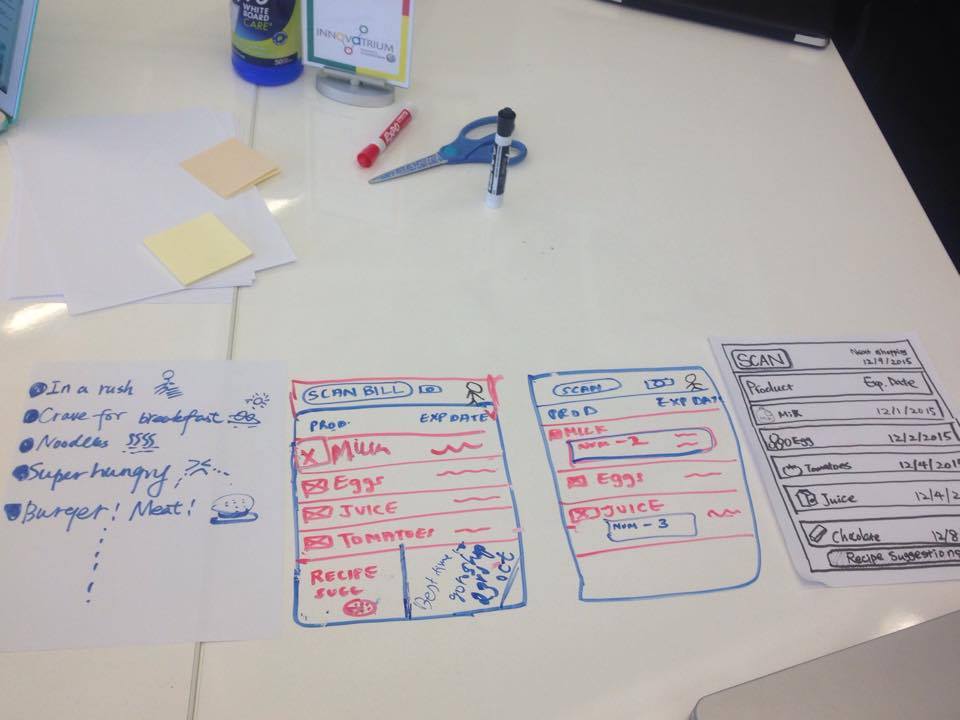 WHITE
BOARD
CARE
INNOVATRIUM
EXPO
In a rush
Crave for breakfast
Noodles
Super hungry
Burger! Meat!
SCAN BILL
PROD. EXP DATE
Milk
EGGS
JUICE
TOMATOES
RECIPE
SUGG
Best time
SCAN
PROD EXP DATE
MILK
NUM - 2
EGGS
JUICE
NUM - 3
SCAN
Next shopping
12/9/2015
Product Exp. Date
Milk 12/1/2015
Egg 12/2/2015
Tomatoes 12/4/2015
Juice 12/4/2
Chocolate 12/8
Recipe Suggestion